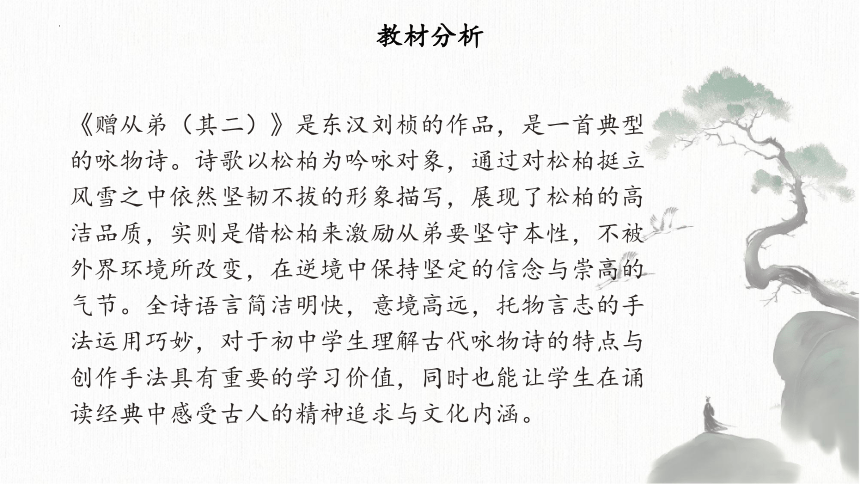 教材分析
《赠从弟（其二）》是东汉刘桢的作品，是一首典型
的咏物诗。诗歌以松柏为吟咏对象，通过对松柏挺立
风雪之中依然坚韧不拔的形象描写，展现了松柏的高
洁品质，实则是借松柏来激励从弟要坚守本性，不被
外界环境所改变，在逆境中保持坚定的信念与崇高的
气节。全诗语言简洁明快，意境高远，托物言志的手
法运用巧妙，对于初中学生理解古代咏物诗的特点与
创作手法具有重要的学习价值，同时也能让学生在诵
读经典中感受古人的精神追求与文化内涵。